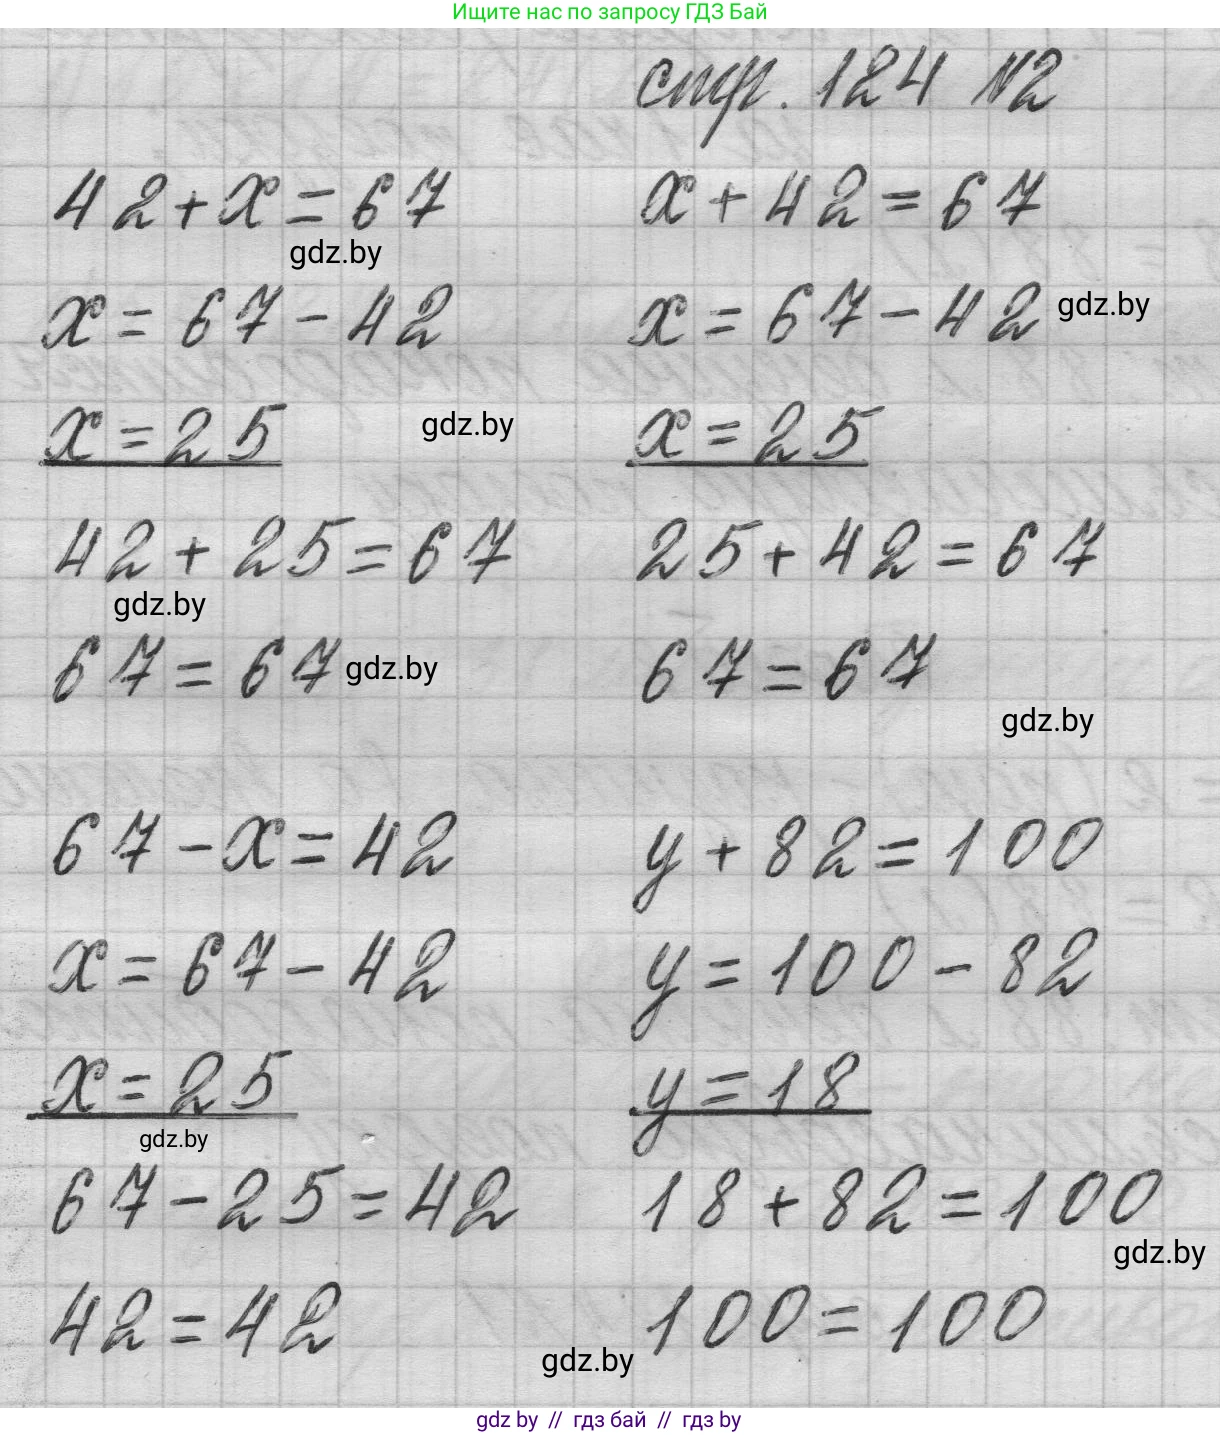 Ищите нас по запросу ГДЗ Бай
стр. 124 №2
42+x=67
x+42=67
gdz.by
x=67-42
x=67-42
gdz.by
x=25
gdz.by
x=25
42+25=67
25+42=67
gdz.by
67=67
gdz.by
67=67
gdz.by
67-x=42
y+82=100
x=67-42
y=100-82
x=25
y=18
gdz.by
67-25=42
18+82=100
gdz.by
42=42
100=100
gdz.by
gdz by // гдз бай // гдз by